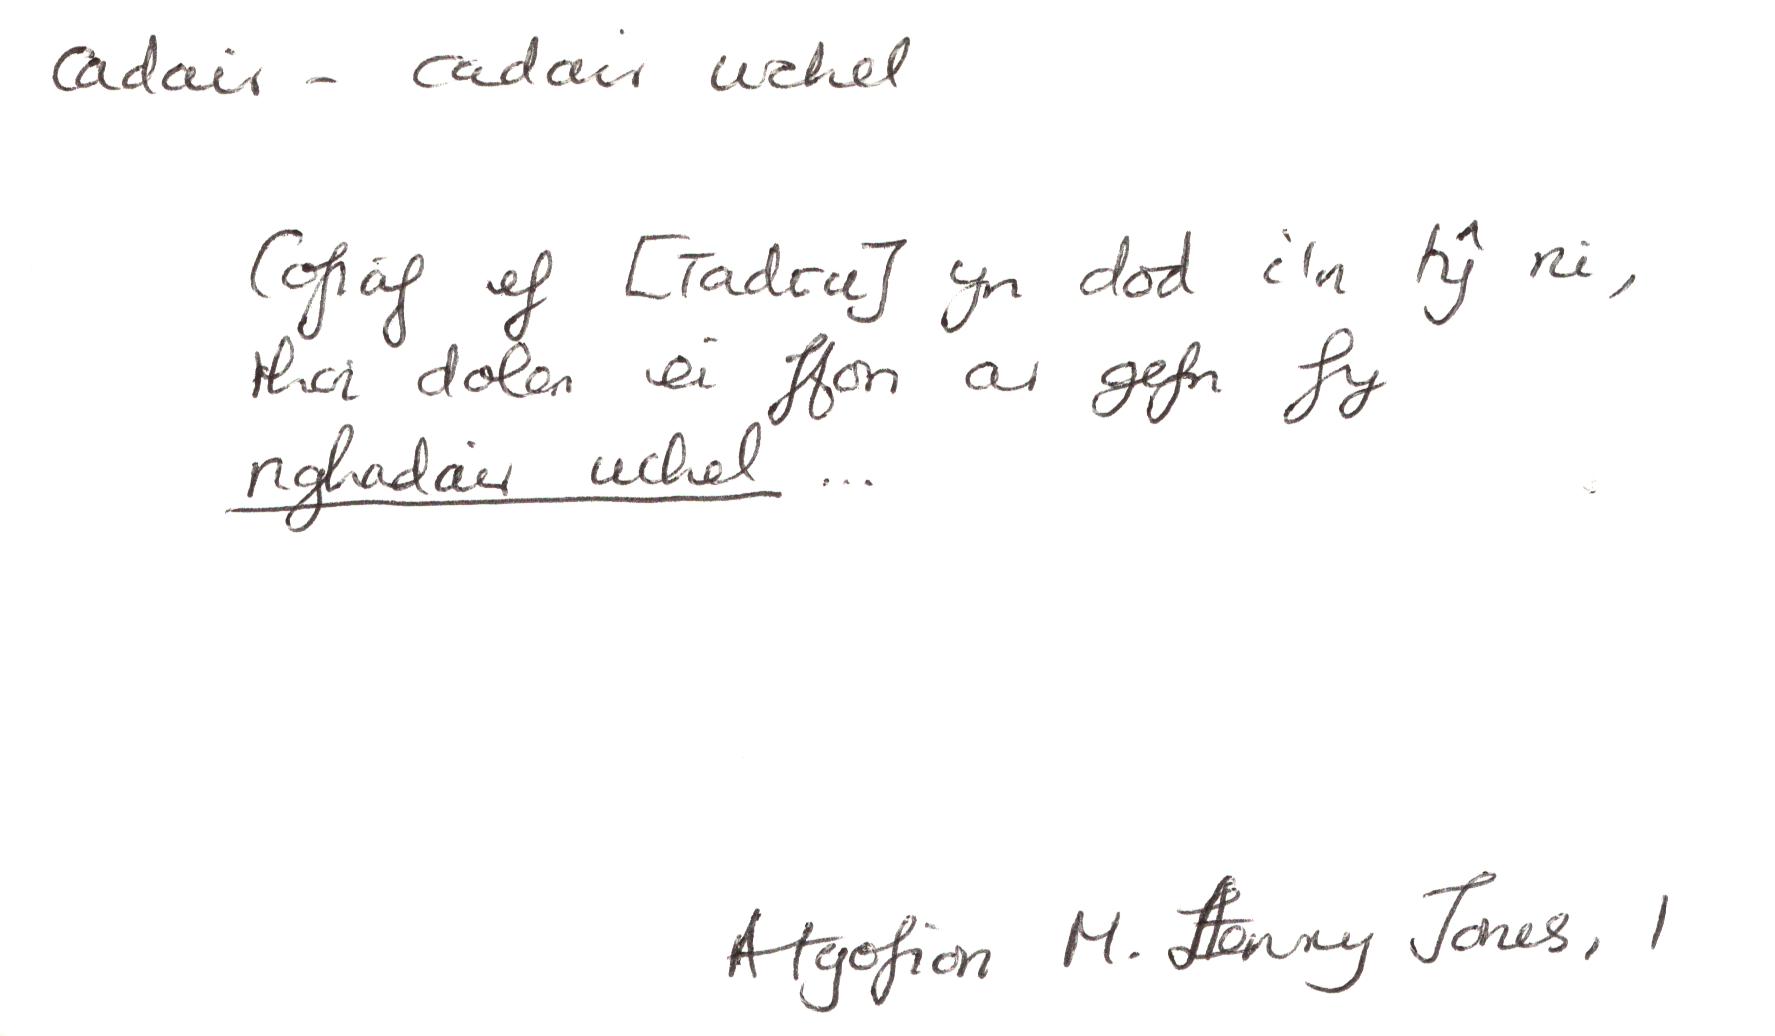 cadair - cadair uchel
Cofiaf ef [Tadcu] yn dod i'n tŷ ni,
rhoi dolen ei ffon ar gefn fy
nghadair uchel ...
Atgofion M. Henry Jones, 1